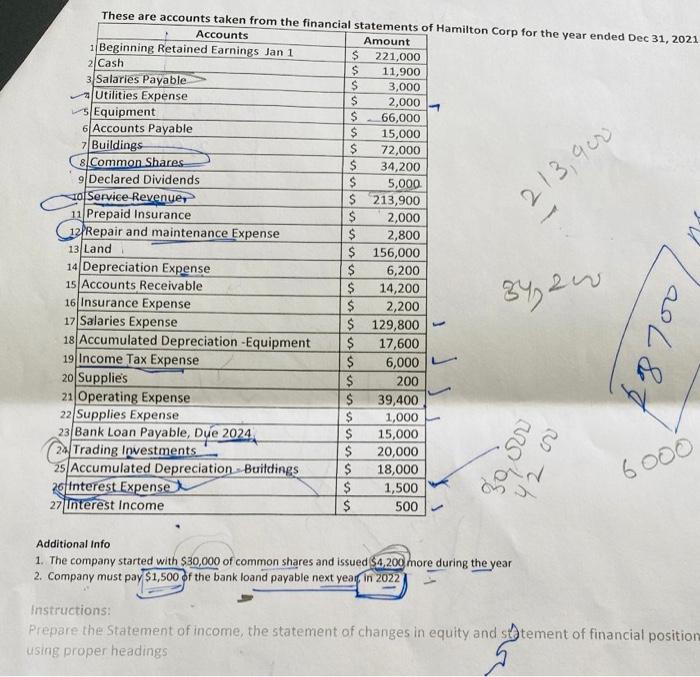 These are accounts taken from the financial statements of Hamilton Corp for the year ended Dec 31, 2021
Accounts Amount
1 Beginning Retained Earnings Jan 1 $ 221,000
2 Cash $ 11,900
3 Salaries Payable $ 3,000
4 Utilities Expense $ 2,000
5 Equipment $ 66,000
6 Accounts Payable $ 15,000
7 Buildings $ 72,000
8 Common Shares $ 34,200
9 Declared Dividends $ 5,000
10 Service Revenue $ 213,900
11 Prepaid Insurance $ 2,000
12 Repair and maintenance Expense $ 2,800
13 Land $ 156,000
14 Depreciation Expense $ 6,200
15 Accounts Receivable $ 14,200
16 Insurance Expense $ 2,200
17 Salaries Expense $ 129,800
18 Accumulated Depreciation -Equipment $ 17,600
19 Income Tax Expense $ 6,000
20 Supplies $ 200
21 Operating Expense $ 39,400
22 Supplies Expense $ 1,000
23 Bank Loan Payable, Due 2024 $ 15,000
24 Trading Investments $ 20,000
25 Accumulated Depreciation - Buildings $ 18,000
26 Interest Expense $ 1,500
27 Interest Income $ 500
213,900
34,200
28700
6000
30,000
4200
Additional Info
1. The company started with $30,000 of common shares and issued $4,200 more during the year
2. Company must pay $1,500 of the bank loand payable next year, in 2022
Instructions:
Prepare the Statement of income, the statement of changes in equity and statement of financial position
using proper headings